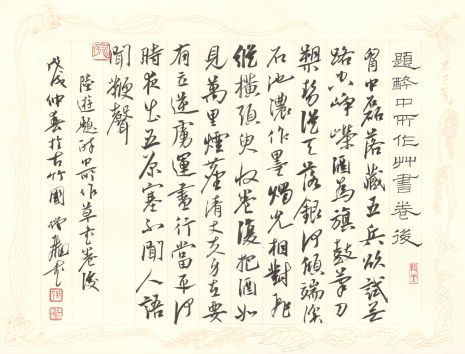 題醉中所作艸書卷後
胸中磊落藏五兵欲試無
路空崢嶸酒為旗鼓筆刀
槊勢從天落銀河傾端溪
石池濃作墨燭光相對飛
縱橫須臾收卷復把酒如
見萬里煙塵清丈夫身在要
有立逆虜運盡行當平何
時夜出五原塞不聞人語
聞鞭聲
陸遊題醉中所作草書卷後
戊戌仲春於古竹國